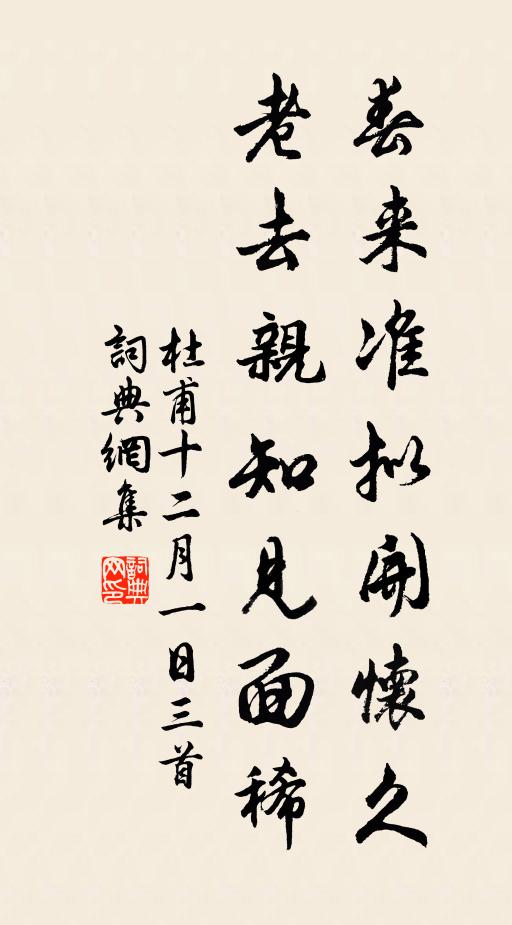 春来准拟開懷久
老去親知見面稀
杜甫十二月一日三首
詞典網集
詞典網印